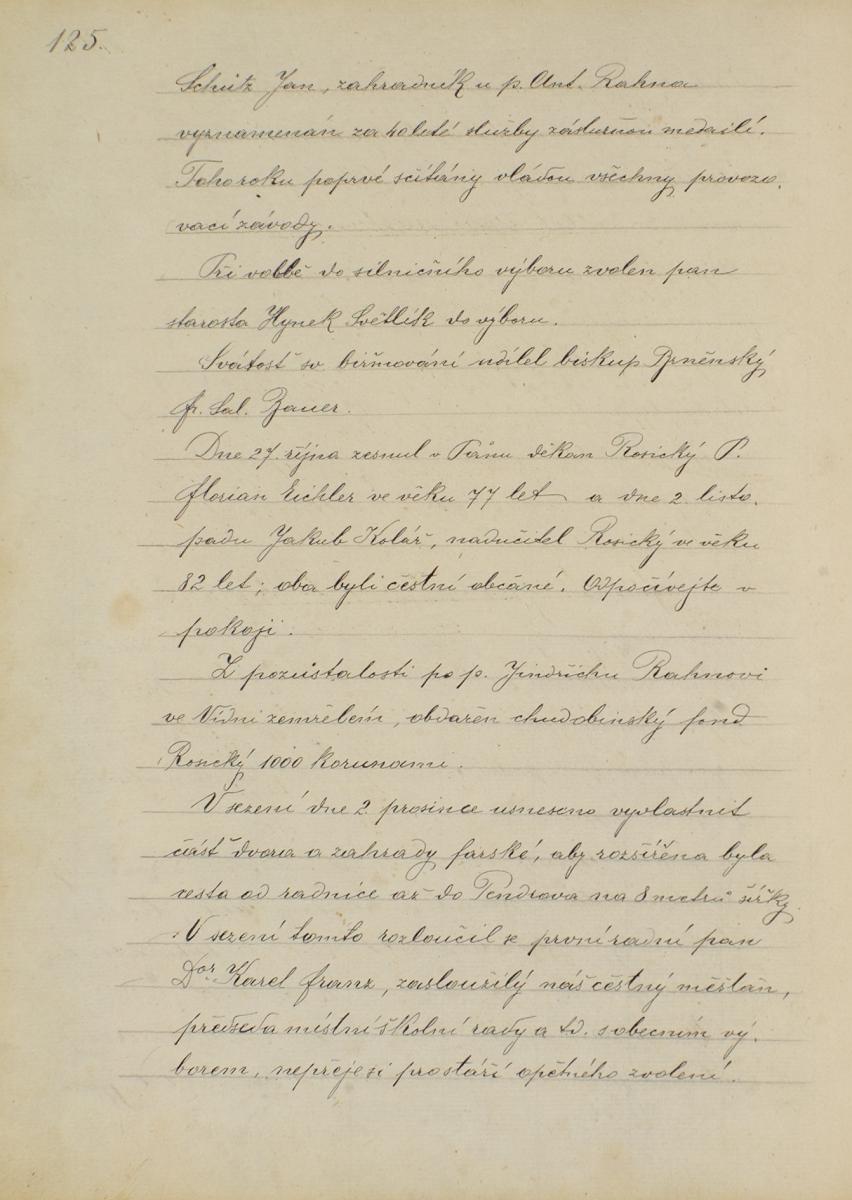 125.
Schütz Jan, zahradník u p. Ant. Rahna
vyznamenán za 40 leté služby záslužnou medailí.
Toho roku poprvé sčítány vládou všechny provozo-
vací závody.
Při volbě do silničního výboru zvolen pan
starosta Hynek Světlík do výboru.
Svátost sv. biřmování udílel biskup Brněnský
Fr. Sal. Bauer.
Dne 27. října zesnul v Pánu děkan Rosický P.
Florian Eichler ve věku 77 let a dne 2. listo-
padu Jakub Kolář, nadučitel Rosický ve věku
82 let; oba byli čestní občané. Odpočívejte v
pokoji.
Z pozůstalosti po p. Jindřichu Rahnovi
ve Vídni zemřelém, obdařen chudobinský fond
Rosický 1000 korunami.
V sezení dne 2. prosince usneseno vyvlastnit
část dvora a zahrady farské, aby rozšířena byla
cesta od radnice až do Pendrova na 8 metrů šířky.
V sezení tomto rozloučil se první radní pan
Dor. Karel Franz, zasloužilý náš čestný měšťan,
předseda místní školní rady a td. s obecním vý-
borem, nepřeje si prostáří opětného zvolení.